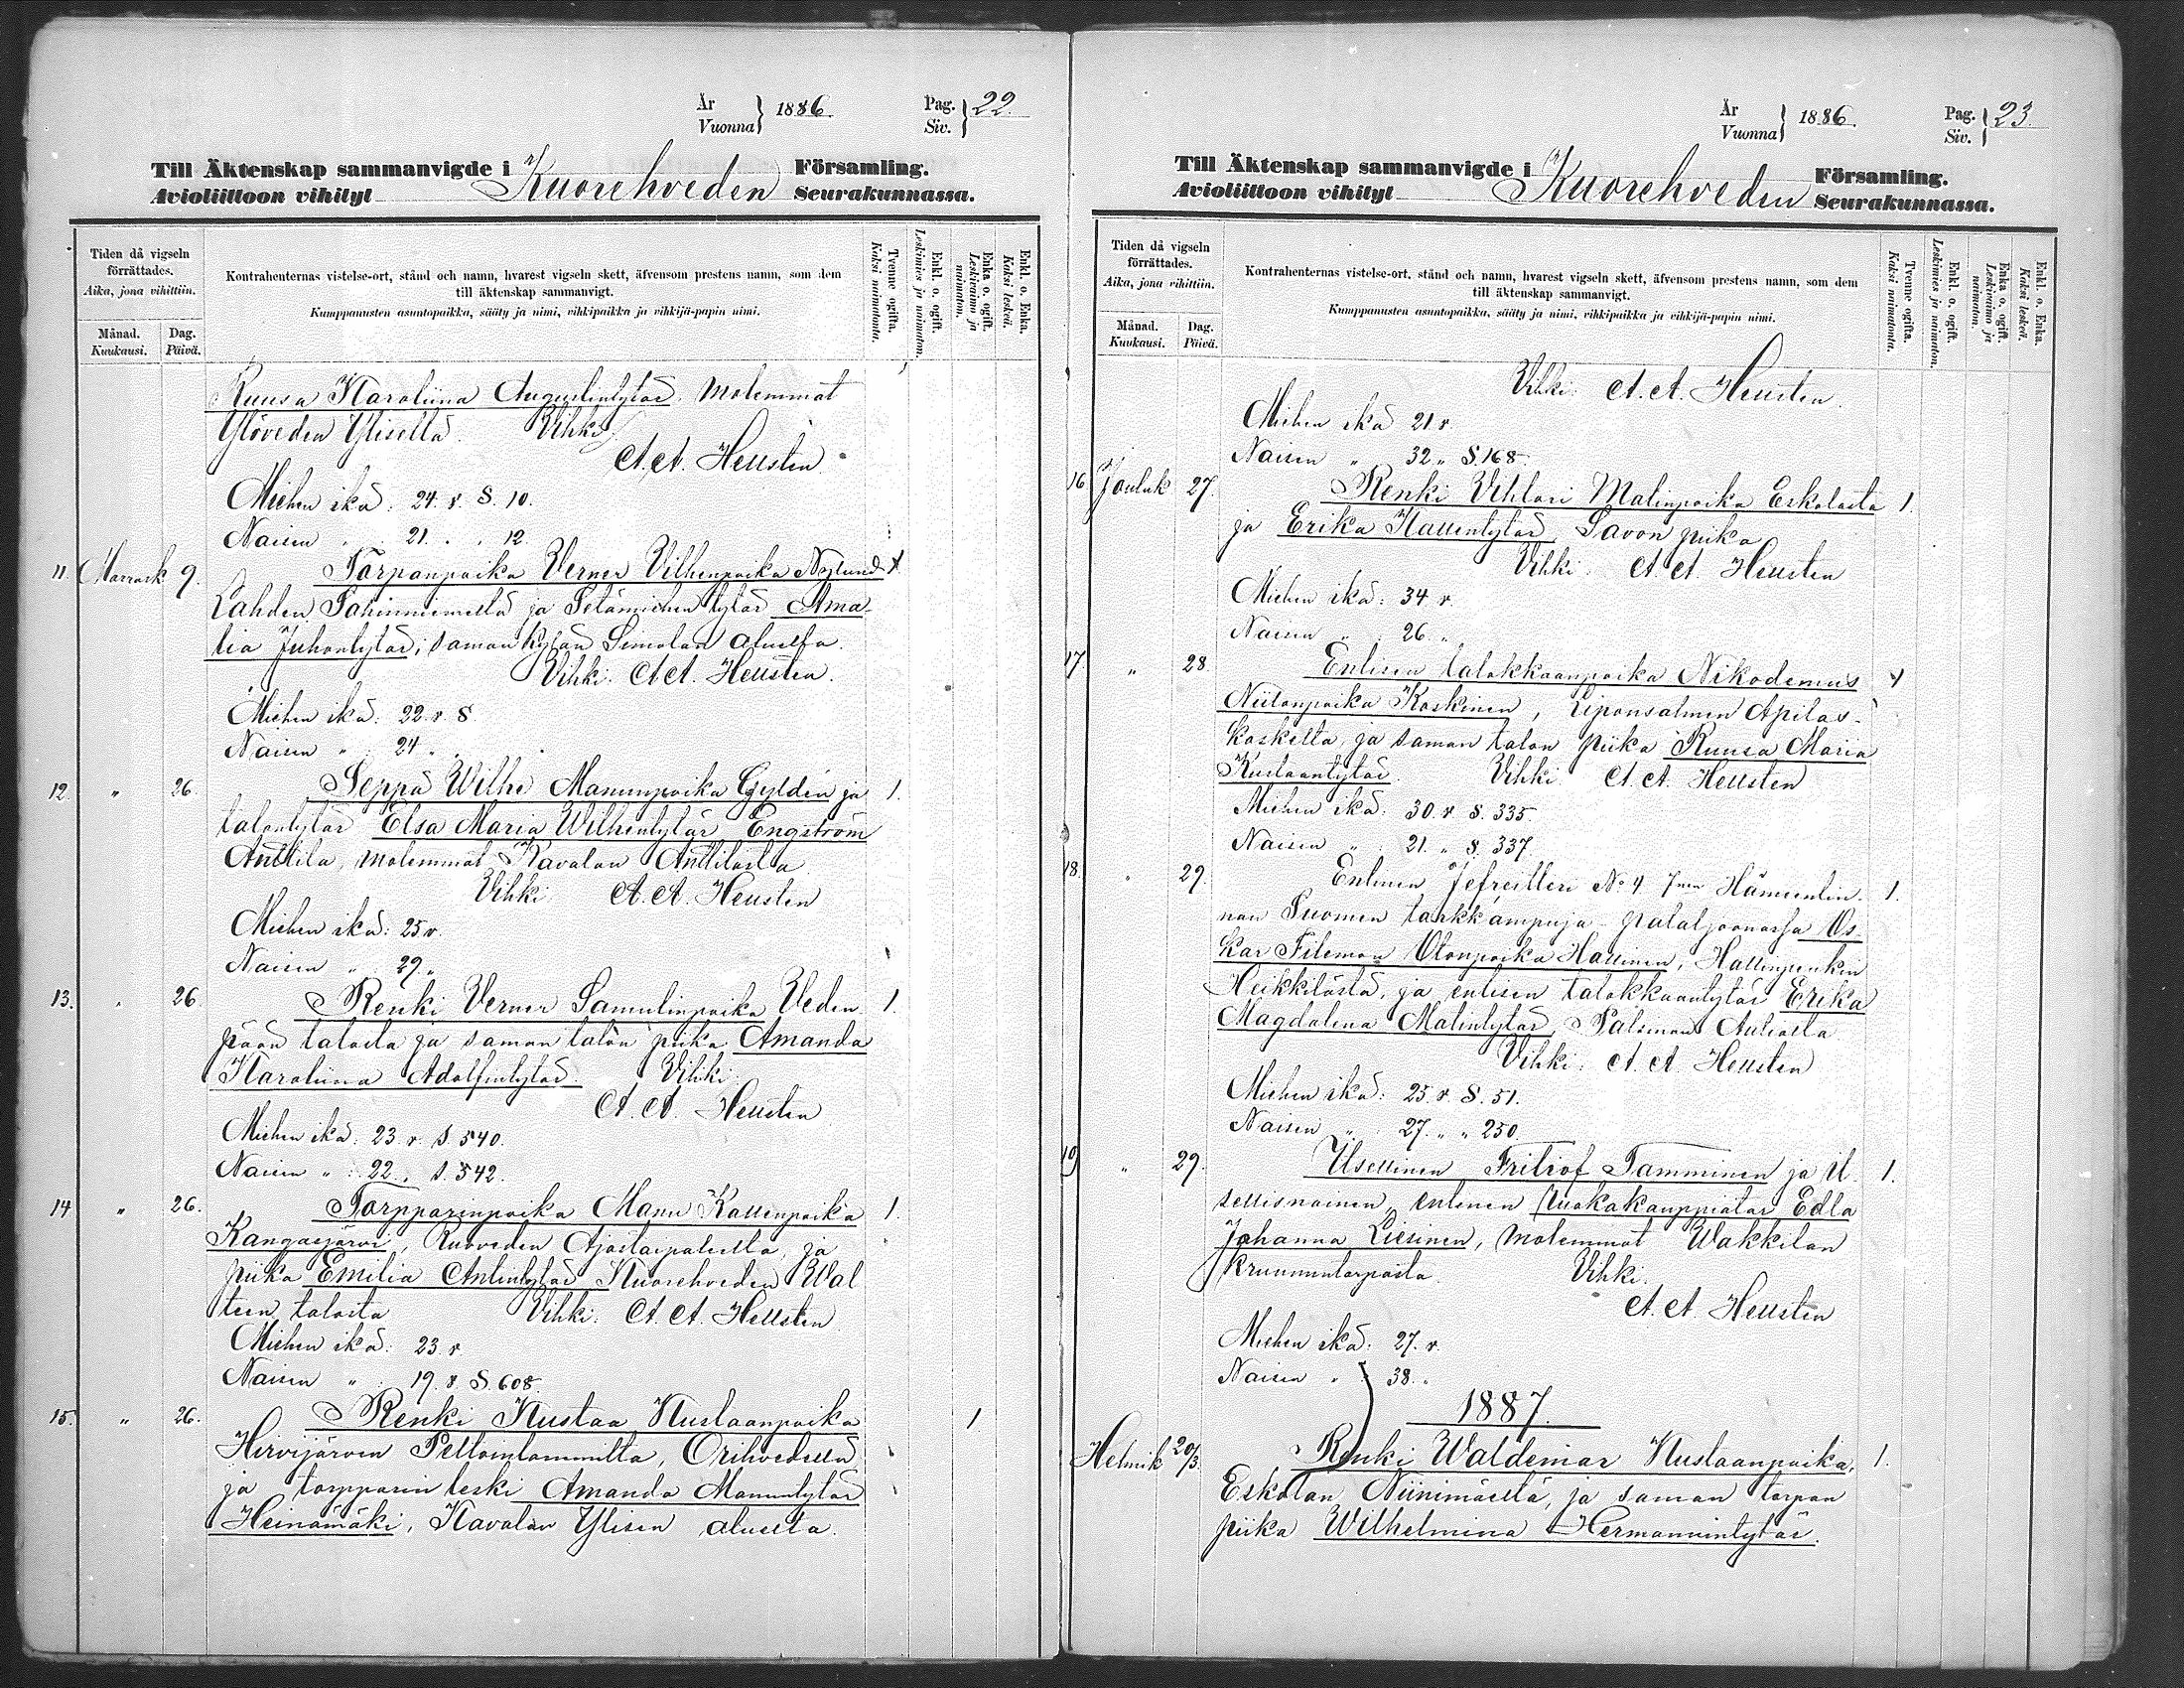 År
Vuonna } 1886.
Pag.
Siv. } 22.
Till Äktenskap sammanvigde i Kuorehveden Församling.
Avioliittoon vihityt Seurakunnassa.
Tiden då vigseln förrättades.
Aika, jona vihittiin.
Månad.
Kuukausi.
Dag.
Päivä.
Kontrahenternas vistelse-ort, stånd och namn, hvarest vigseln skett, äfvensom prestens namn, som dem
till äktenskap sammanvigt.
Kumppanusten asuntopaikka, sääty ja nimi, vihkipaikka ja vihkijä-papin nimi.
Tvenne ogifta.
Kaksi naimatonta.
Enkl. o. ogift.
Leskimies ja naimaton.
Enka o. ogift.
Leskivaimo ja naimaton.
Enkl. o. Enka.
Kaksi leskeä.
Ruusa Karoliina Augustintytär, molemmat
Ylöveden Ylisellä. Vihki
A. A. Heusten
Miehen ikä: 24. v. S. 10.
Naisen " 21. " " 12.
11. Marrask 9. Torpanpoika Verner Vilhenpoika Nylund 1
Lahden ja Itämiehen tytär Ama-
lia Juhontytär, saman kylän Simolan alueelta.
Vihki. A. A. Heusten.
Miehen ikä: 22. v. S.
Naisen " 24 "
12. " 26. Seppä Wilho Manunpoika Gyldén ja 1.
talontytär Elsa Maria Wilhentytär Engström
Anttila, molemmat Kavalan Anttilasta
Vihki A. A. Heusten
Miehen ikä: 25 v.
Naisen " 29. "
13. " 26. Renki Verner Samulinpoika Veden 1.
pään talosta ja saman talon piika Amanda
Karoliina Adolfintytär. Vihki
A. A. Heusten
Miehen ikä: 23. v. S. 540.
Naisen " : 22. " S. 542.
14 " 26. Torpparinpoika Manu Kallenpoika 1.
Kangasjärvi, Ruoveden Ajostaipaleelta, ja
piika Emilia Antintytär Kuorehveden Wal
teen talosta Vihki. A. A. Heusten
Miehen ikä: 23. v
Naisen " 19. v S. 608.
15. " 26. Renki Kustaa Kustaanpoika 1
Hirvijärven Peltoinlammilta, Orihvedellä
ja torpparin leski Amanda Manuntytär
Heinämäki, Kavalan Ylisen alueelta.
År
Vuonna } 1886.
Pag.
Siv. } 23.
Till Äktenskap sammanvigde i Kuorehveden Församling.
Avioliittoon vihityt Seurakunnassa.
Tiden då vigseln förrättades.
Aika, jona vihittiin.
Månad.
Kuukausi.
Dag.
Päivä.
Kontrahenternas vistelse-ort, stånd och namn, hvarest vigseln skett, äfvensom prestens namn, som dem
till äktenskap sammanvigt.
Kumppanusten asuntopaikka, sääty ja nimi, vihkipaikka ja vihkijä-papin nimi.
Tvenne ogifta.
Kaksi naimatonta.
Enkl. o. ogift.
Leskimies ja naimaton.
Enka o. ogift.
Leskivaimo ja naimaton.
Enkl. o. Enka.
Kaksi leskeä.
Vihki: A. A. Heusten
Miehen ikä 21 v.
Naisen " 32 " S. 168.
16 Jouluk 27. Renki Vihtori Matinpoika Eskolasta 1.
ja Erika Kallentytär, Savon piika
Vihki. A. A. Heusten
Miehen ikä: 34 v.
Naisen " : 26. "
17. " 28. Entisen talokkaanpoika Nikodemus 1
Niilonpoika Koskinen, Liponsalmen Apilas-
koskelta, ja saman talon piika Ruusa Maria
Kustaantytär. Vihki A. A. Heusten
Miehen ikä: 30. v S. 335.
Naisen " 21. " S. 337.
18. " 29. Entinen Jefreitteri No 4 7nen Hämeenlin- 1.
nan Suomen tarkk'ampuja-pataljoonassa Os-
kar Filemon Otonpoika Hallinen, Hallinpenkin
Heikkilästä, ja entisen talokkaantytär Erika
Magdalena Matintytär, Palsinan Anliasta
Vihki: A. A. Heusten
Miehen ikä: 25. v S. 51.
Naisen " : 27. " " 250.
19 " 29. Itsellinen Fritiof Tamminen ja it- 1.
sellisnainen, entinen ruokakauppiatar Edla
Johanna Liesinen, molemmat Wakkilan
kruununtorpasta. Vihki.
A. A. Heusten
Miehen ikä: 27. v.
Naisen " : 38. "
1887.
Helmik 20/3. Renki Waldemar Kustaanpoika, 1.
Eskolan Niinimäeltä, ja saman torpan
piika Wilhelmina Hermannintytär.